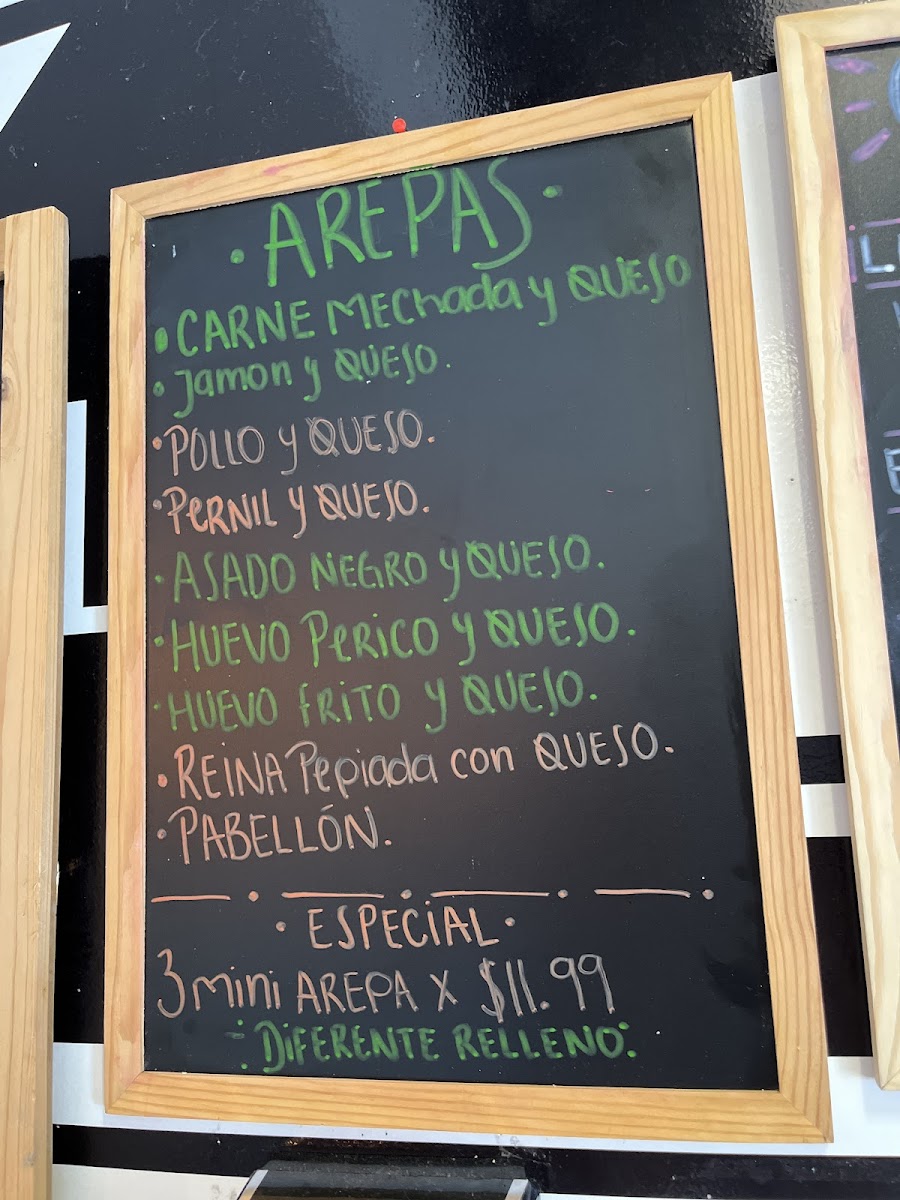 · AREPAS ·
· CARNE MeChada y QUESO
· Jamon y QUESO.
· POLLO y QUESO.
· PERNIL y QUESO.
· ASADO NEGRO y QUESO.
· HUEVO PERICO y QUESO.
· HUEVO fRITO y QUESO.
· REINA Pepiada con QUESO.
· PABELLÓN.
· ESPECiAL ·
3 mini AREPA X $11.99
DiFERENTE RELLENO